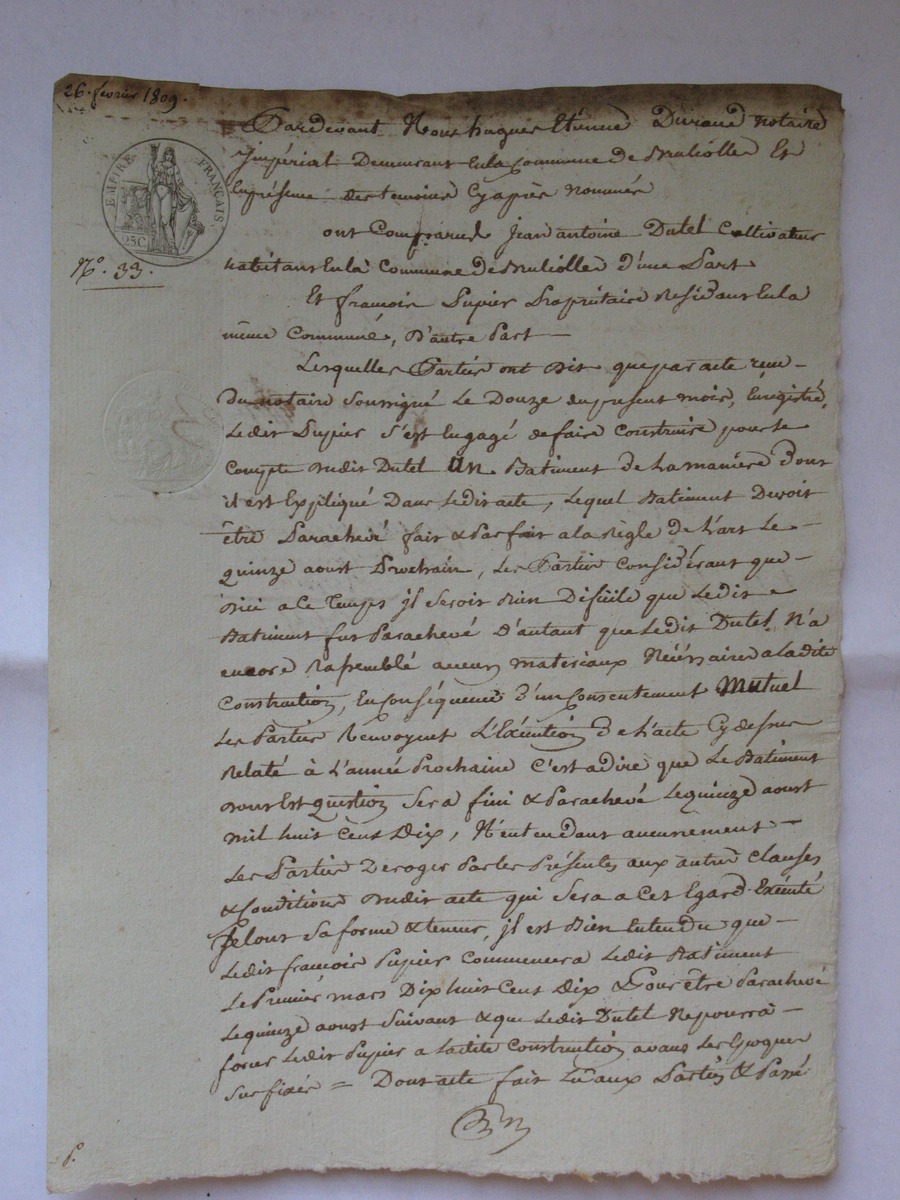 26. fevrier 1809.
Pardevant Nous hugues Etienne Durand Notaire
Impérial Demeurant En la Commune de Bruliolles Et
En présence des temoins Cy après Nommés
EMPIRE FRANÇAIS.
25 C.
N.º 33.
ont Comparu Jean antoine Dutel Cultivateur
habitant En la Commune de Bruliolles d'une Part
Et françois Pupier Propriétaire Résidant En la
même Commune, D'autre Part
Lesquelles Parties ont Dit que par acte reçu
Du notaire Soussigné Le Douze du présent mois, Enregistré,
Ledit Pupier S'est Engagé de faire Construire pour le
Compte dudit Dutel Un Batiment de La manière Dont
il est Expliqué Dans Ledit acte, Lequel Batiment Devoit
être Parachevé fait & Parfait a la Règle de L'art Le
quinze aoust Prochain, Les Parties Considérant que
D'ici a Ce Temps il Seroit Bien Dificile que Ledit
Batiment fut Parachevé D'autant que Ledit Dutel N'a
encore rassemblé aucuns materiaux Nécéssaires a Ladite
Construction, En Conséquence D'un Consentement Mutuel
Les Parties Renvoyent L'Exécution de L'acte Cy dessus
Relaté à L'année Prochaine C'est a dire que Le Batiment
Dont Est question Sera fini & Parachevé Le quinze aoust
Mil huit Cent Dix, N'entendant aucunement
Les Parties Deroger Par les Présentes aux autres Clauses
& Conditions dudit acte qui Sera a Cet Egard Exécuté
Selont Sa forme & teneur, il est Bien Entendu que
Ledit françois Pupier Commencera Ledit Batiment
Le Premier mars Dix huit Cent Dix & Pour être Parachevé
Le quinze aoust Suivant & que Ledit Dutel Ne pourra
forcer Ledit Pupier a Ladite Construction avant Les Epoques
Sus fixées = Dont acte fait Lu aux Parties & Passé